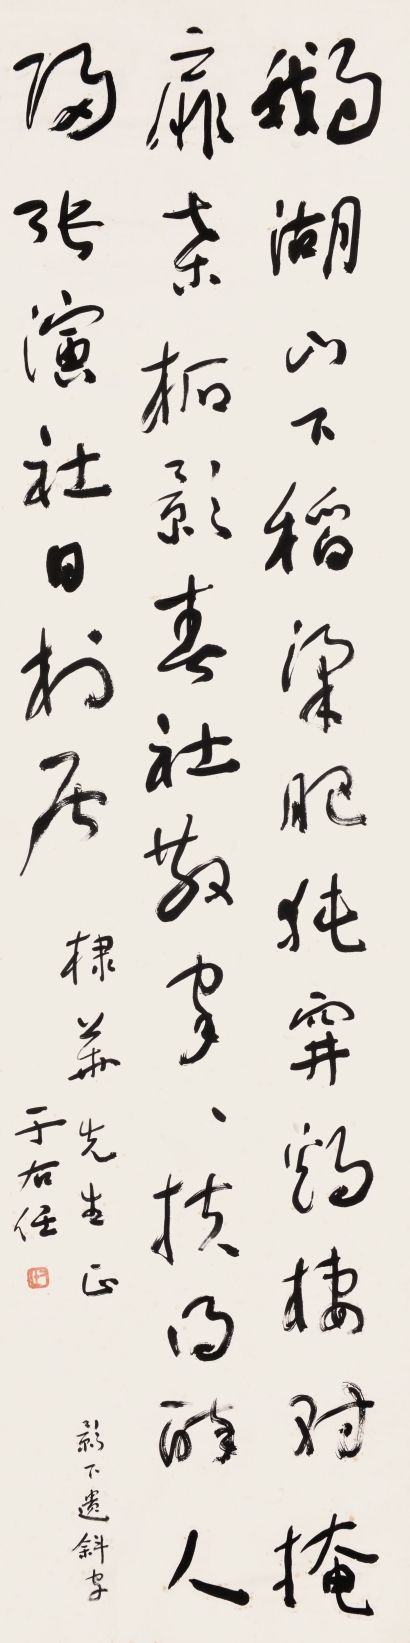 鵝湖山下稻梁肥㹠穽鷄棲對掩
扉桑柘影春社散家、扶得醉人
歸張演社日村居
棣華先生正
于右任
影下遺斜字